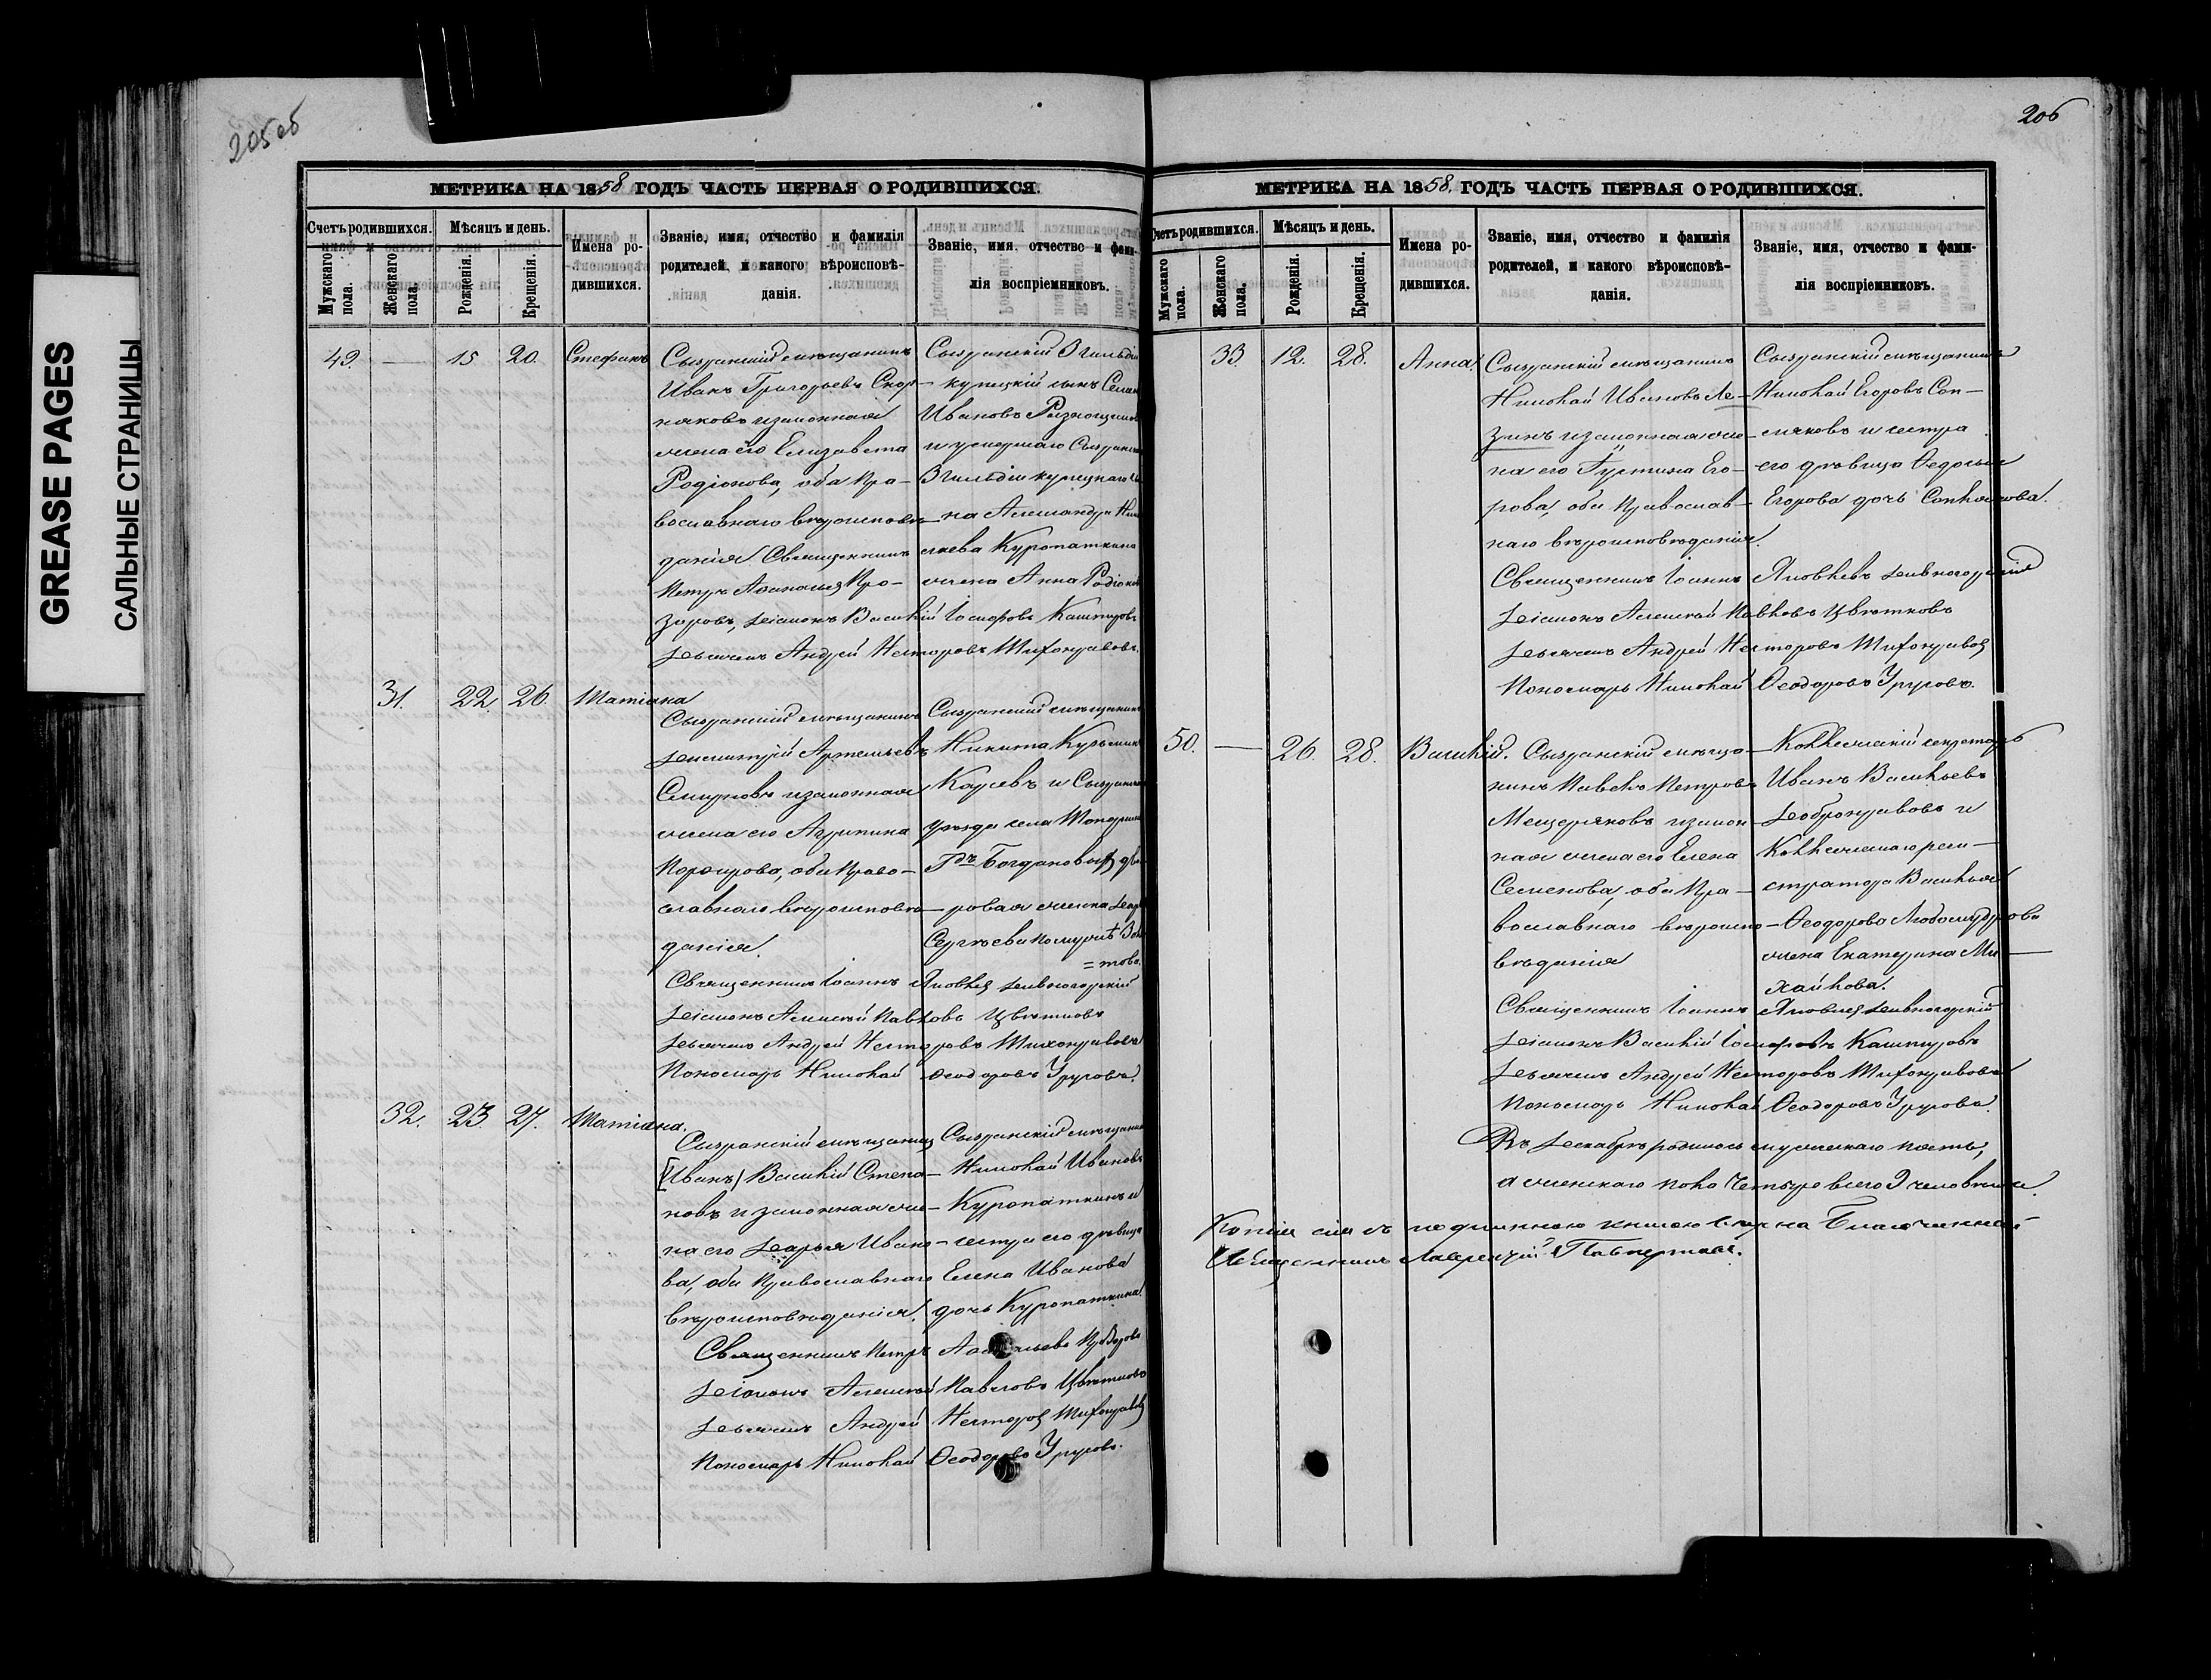 GREASE PAGES
САЛЬНЫЕ СТРАНИЦЫ
205об
МЕТРИКА НА 1858 ГОДЪ ЧАСТЬ ПЕРВАЯ О РОДИВШИХСЯ.
Счетъ родившихся.
Мѣсяцъ и день.
Мужскаго пола.
Женскаго пола.
Рожденія.
Крещенія.
Имена родившихся.
Званіе, имя, отчество и фамилія
родителей, и какого вѣроисповѣ-
данія.
Званіе, имя, отчество и фами-
лія воспріемниковъ.
49. — 15 20. Стефанъ
Сызранскій мѣщанинъ
Иванъ Григорьевъ Скор-
няковъ и законная
жена его Елизавета
Родіонова, оба пра-
вославнаго вѣроисповѣ-
данія. Священникъ
Петръ Афанасьев Про-
зоровъ, Діаконъ Василій Іосифовъ Каштуровъ
Дьячекъ Андрей Несторовъ Тихонравовъ.
Сызранскій 3 гильдіи
купецкій сынъ
Ивановъ
и умершаго Сызранска
3 гильдіи купецкаго сы
на Александра Ник
лаева Куропаткина
жена Анна Родіонов
31. 22. 26. Татіана
Сызранскій мѣщанинъ
Димитрій Артемьевъ
Смирновъ и законная
жена его Агрипина
Порфирова, оба право-
славнаго вѣроисповѣ-
данія.
Священникъ Іоаннъ Яковлев Дивногорскій
Діаконъ Алексѣй Павловъ Цвѣтковъ
Дьячекъ Андрей Несторовъ Тихонравовъ
Пономарь Николай Ѳеодоровъ Уруговъ.
Сызранскій мѣщанин
Никита Кузьмин
Каревъ и Сызранска
уѣзда села
Гдъ Богдановыхъ дво
ровая женка Дарья
Сергѣева по мужѣ Зо
=това.
32. 23. 27. Татіана.
Сызранскій мѣщанинъ
[Иванъ] Василій Степа-
новъ и законная же-
на его Дарья Ивано-
ва, оба православнаго
вѣроисповѣданія.
Священникъ Петръ Афанасьевъ Прозоровъ
Діаконъ Алексѣй Павловъ Цвѣтковъ
Дьячекъ Андрей Несторов Тихонравов
Пономарь Николай Ѳеодоровъ Уруговъ.
Сызранскій мѣщанин
Николай Ивановъ
Куропаткинъ и
сестра его дѣвица
Елена Иванова
дочь Куропаткина.
206
МЕТРИКА НА 1858. ГОДЪ ЧАСТЬ ПЕРВАЯ О РОДИВШИХСЯ.
Счетъ родившихся.
Мѣсяцъ и день.
Мужскаго пола.
Женскаго пола.
Рожденія.
Крещенія.
Имена родившихся.
Званіе, имя, отчество и фамилія
родителей, и какого вѣроисповѣ-
данія.
Званіе, имя, отчество и фами-
лія воспріемниковъ.
33. 12. 28. Анна.
Сызранскій мѣщанинъ
Николай Ивановъ Ле-
зинъ и законная же-
на его Густина Его-
рова, оба православ-
наго вѣроисповѣданія.
Священникъ Іоаннъ Яковлевъ Дивногорскій
Діаконъ Алексѣй Павловъ Цвѣтковъ
Дьячекъ Андрей Несторовъ Тихонравов
Пономарь Николай Ѳеодоровъ Уруговъ.
Сызранскій мѣщанинъ
Николай Егоровъ Соп-
ляковъ и сестра
его дѣвица Ѳедосья
Егорова дочь Соплякова.
50. — 26. 28. Василій.
Сызранскій мѣща-
нинъ Павелъ Петровъ
Мещеряковъ и закон-
ная жена его Елена
Семенова, оба пра-
вославнаго вѣроиспо-
вѣданія
Священникъ Іоаннъ Яковлев Дивногорскій
Діаконъ Василій Іосифовъ Каштуровъ
Дьячекъ Андрей Несторовъ Тихонравовъ
Пономарь Николай Ѳеодоровъ Уруговъ.
Коллежскій секретарь
Иванъ Васильевъ
Добронравовъ и
Коллежскаго реги-
стратора Василья
Ѳеодорова Любомудрова
жена Екатерина Ми-
хайлова.
Въ Декабрѣ родилось мужескаго пять,
а женскаго пола четыре всего 9 человѣкъ.
Копія сія съ подлинною книгою вѣрна Благочинный
Священникъ Лаврентій